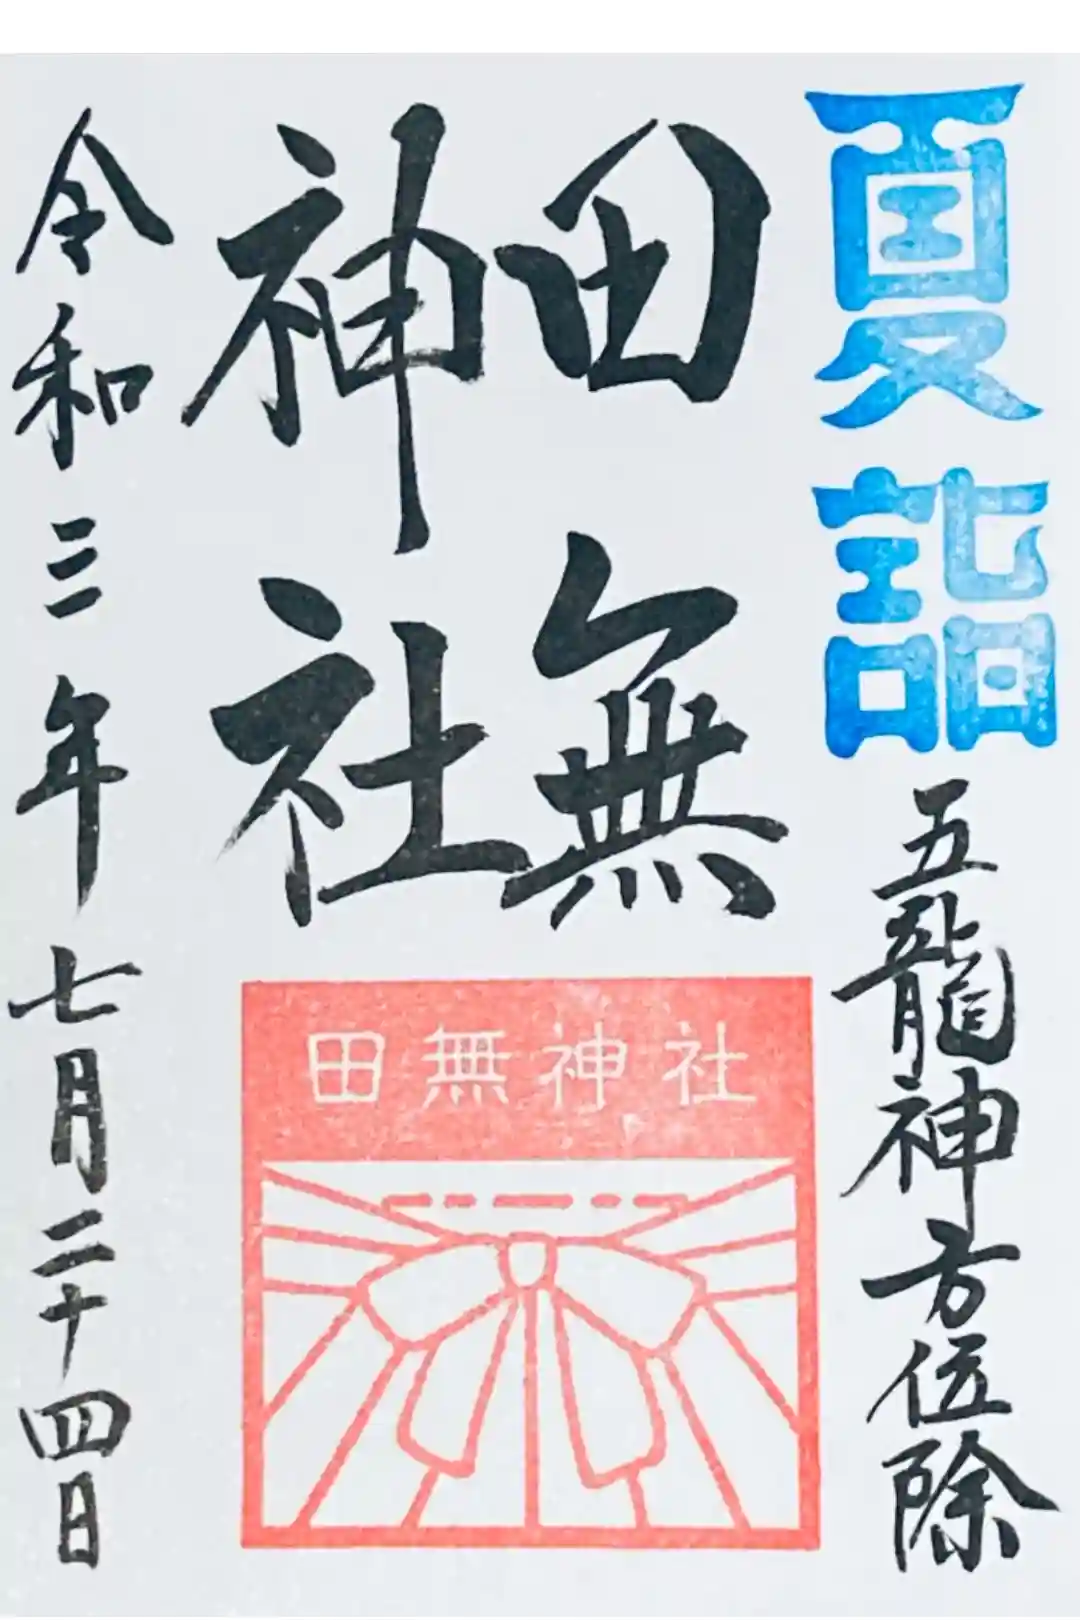 夏詣
五龍神方位除
田無
神社
田無神社
令和三年七月二十四日